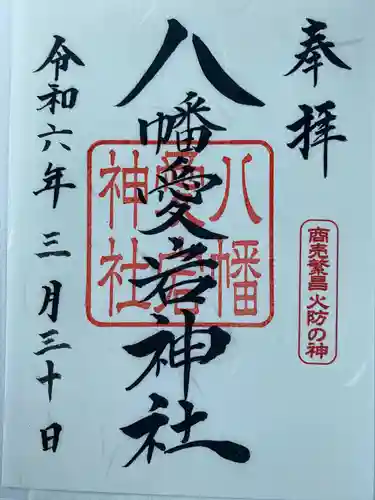 奉拝
商売繁昌 火防の神
八幡愛宕神社
八幡
愛宕
神社
令和六年三月三十日